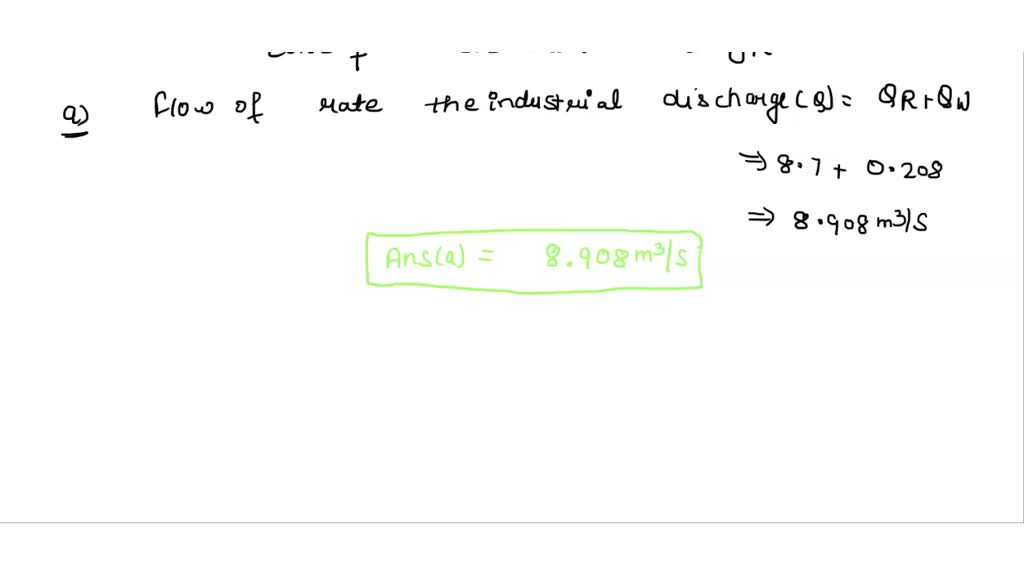 a) flow of rate the industrial discharge(Q) = QR+QW
⇒ 8.7 + 0.208
⇒ 8.908 m³/s
Ans(a) = 8.908 m³/s